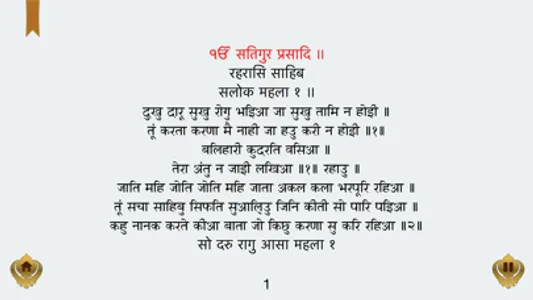 ੴ सतिगुर प्रसादि ॥
रहरासि साहिब
सलोक महला १ ॥
दुखु दारू सुखु रोगु भइिआ जा सुखु तामि न होइी ॥
तूं करता करणा मै नाही जा हउ करी न होइी ॥१॥
बलिहारी कुदरति वसिआ ॥
तेरा अंतु न जाइी लखिआ ॥१॥ रहाउ ॥
जाति महि जोति जोति महि जाता अकल कला भरपूरि रहिआ ॥
तूं सचा साहिबु सिफति सुआलि्उ जिनि कीती सो पारि पइिआ ॥
कहु नानक करते कीआ बाता जो किछु करणा सु करि रहिआ ॥२॥
सो दरु रागु आसा महला १
1